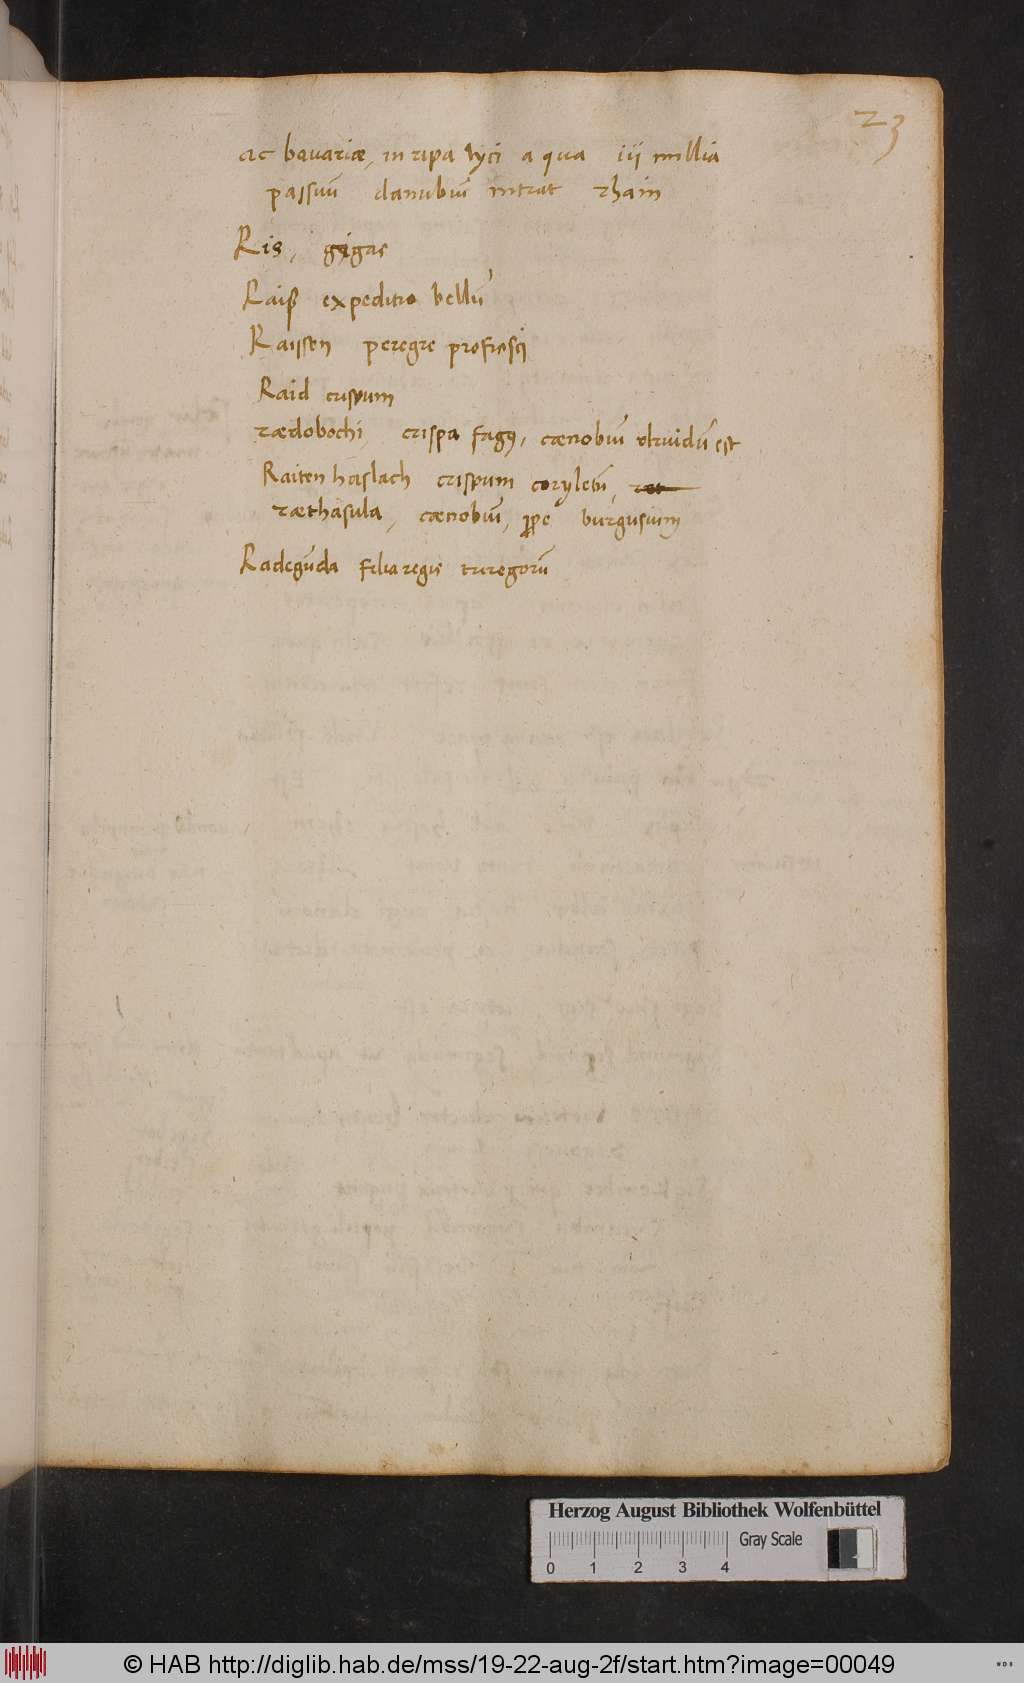 23
ac bavariæ, in ripa lyci a qua iij millia
passuū danubiū intrat rhain
Ris, gigas
Raiß expeditio bellū
Raissen peregre proficisci
Raid crispum
rædobochi crispa fagꝰ, cænobiū druidū est
Raitenhaslach crispum coryletū,
ræthasula, cænobiū, prope burgusium
Radegūda filia regis turegorū
Herzog August Bibliothek Wolfenbüttel
Gray Scale
0 1 2 3 4
© HAB http://diglib.hab.de/mss/19-22-aug-2f/start.htm?image=00049